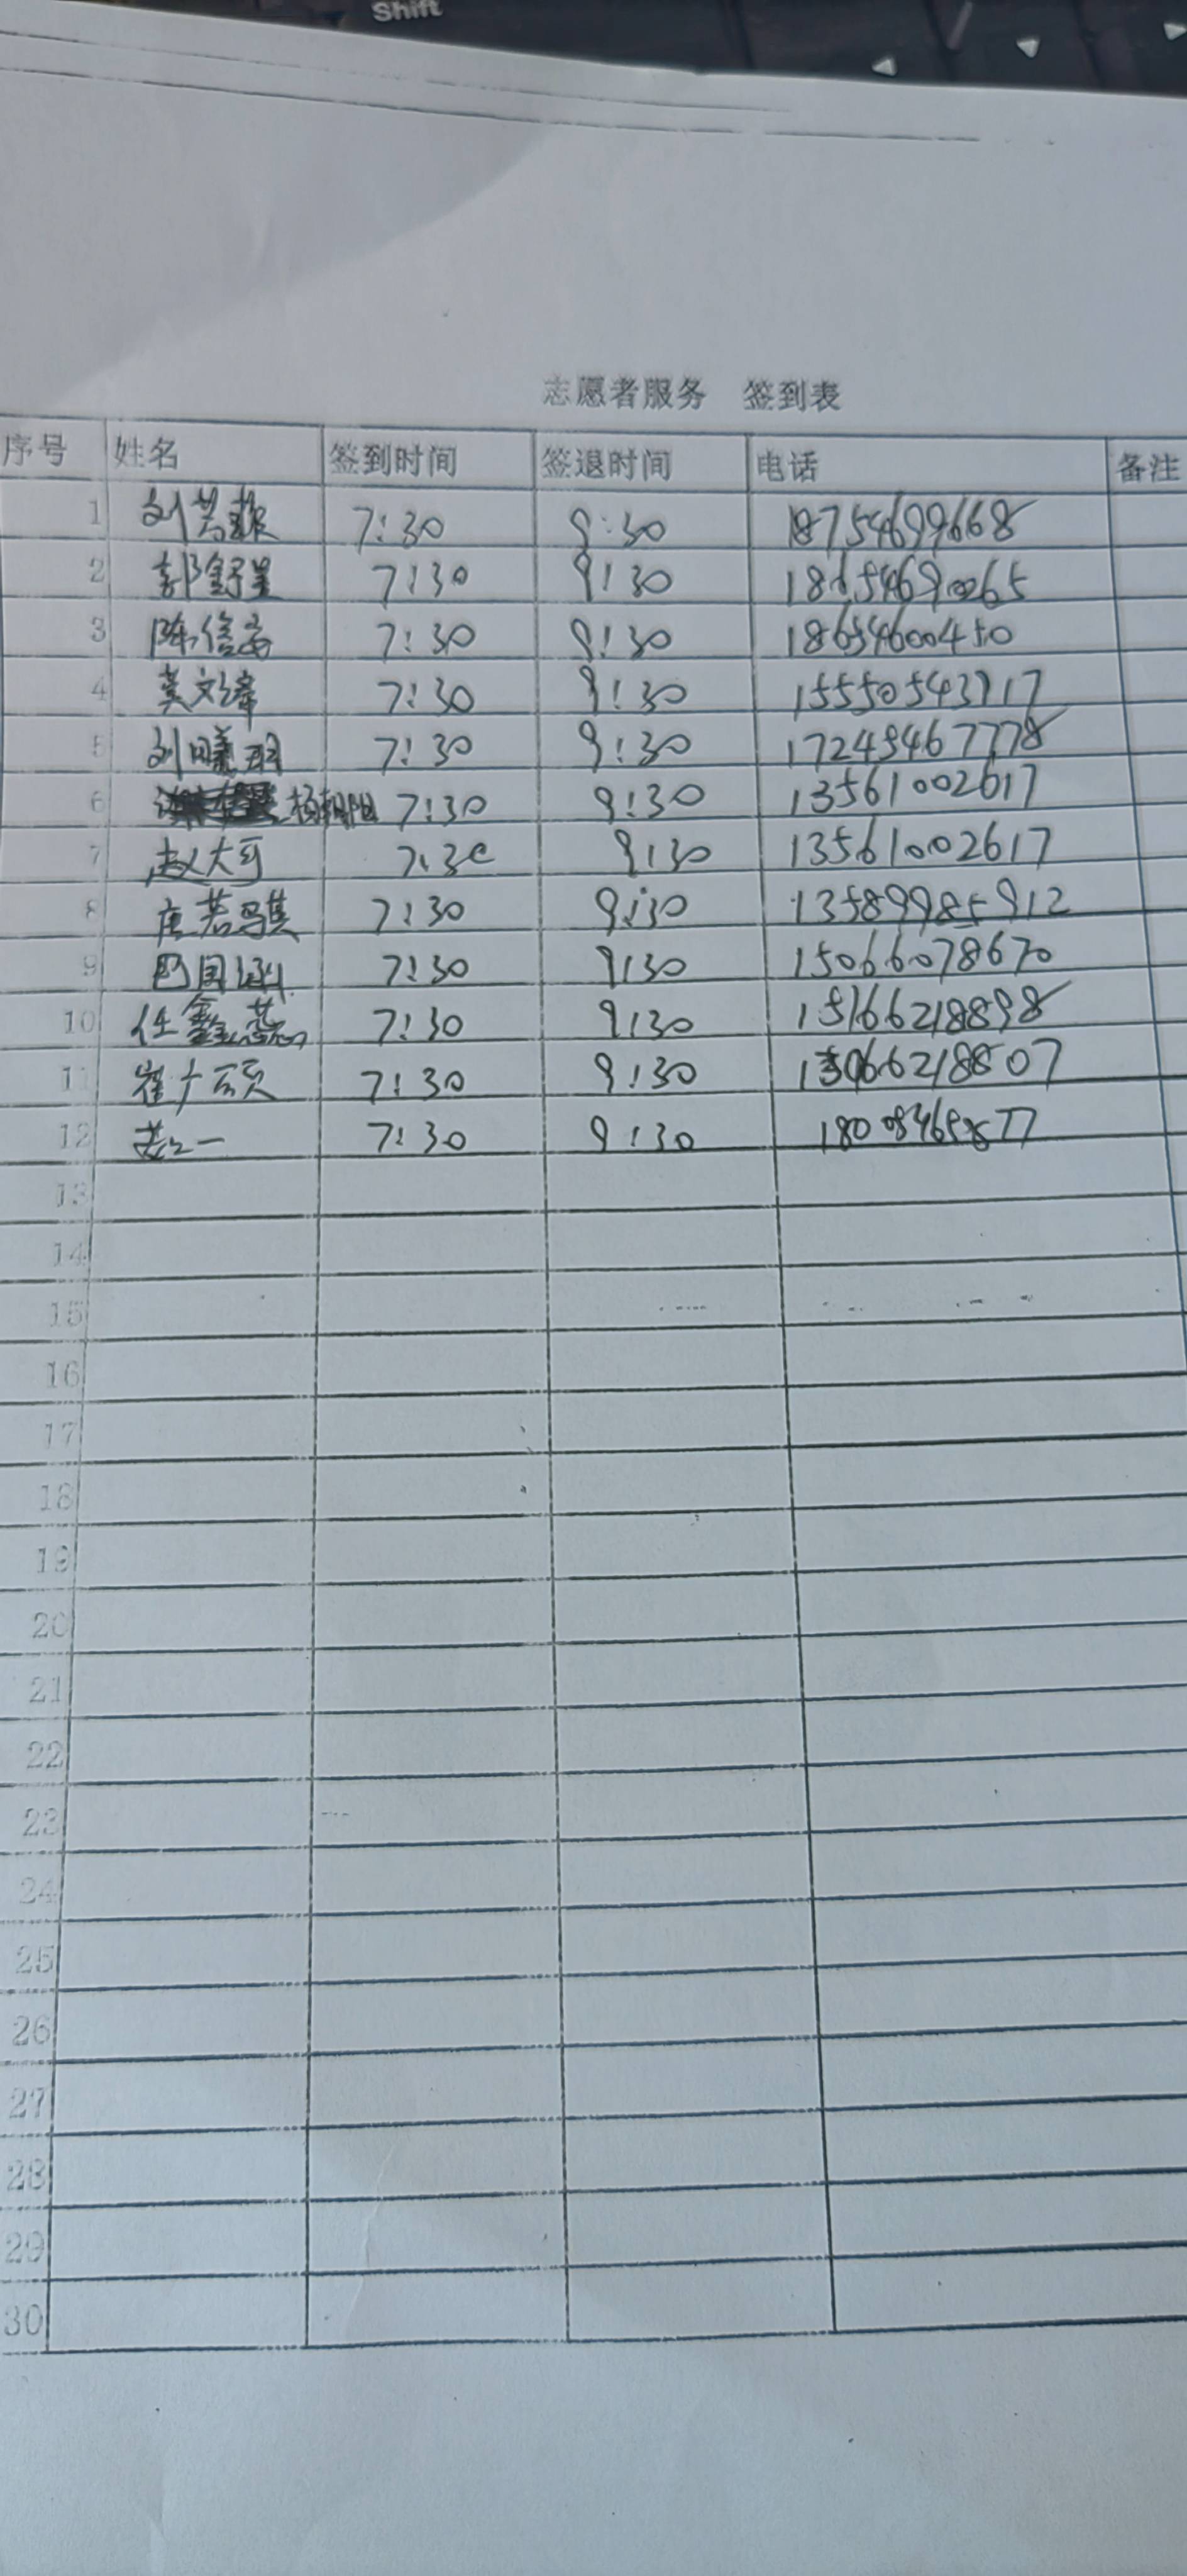 Shift
志愿者服务 签到表
序号 姓名 签到时间 签退时间 电话 备注
1 刘 7:30 9:30 18754699668
2 郭舒 7:30 9:30
3 陈信 7:30 9:30 18654600450
4 文 7:30 9:30 15550543717
5 刘曦羽 7:30 9:30 17245467778
6 杨朝阳 7:30 9:30 13561002617
7 赵大可 7:30 9:30 13561002617
8 唐若骐 7:30 9:30 13589985912
9 巴国涵 7:30 9:30 15066078670
10 任鑫蕊 7:30 9:30 15166218898
11 崔广硕 7:30 9:30
12 一 7:30 9:30
13
14
15
16
17
18
19
20
21
22
23
24
25
26
27
28
29
30